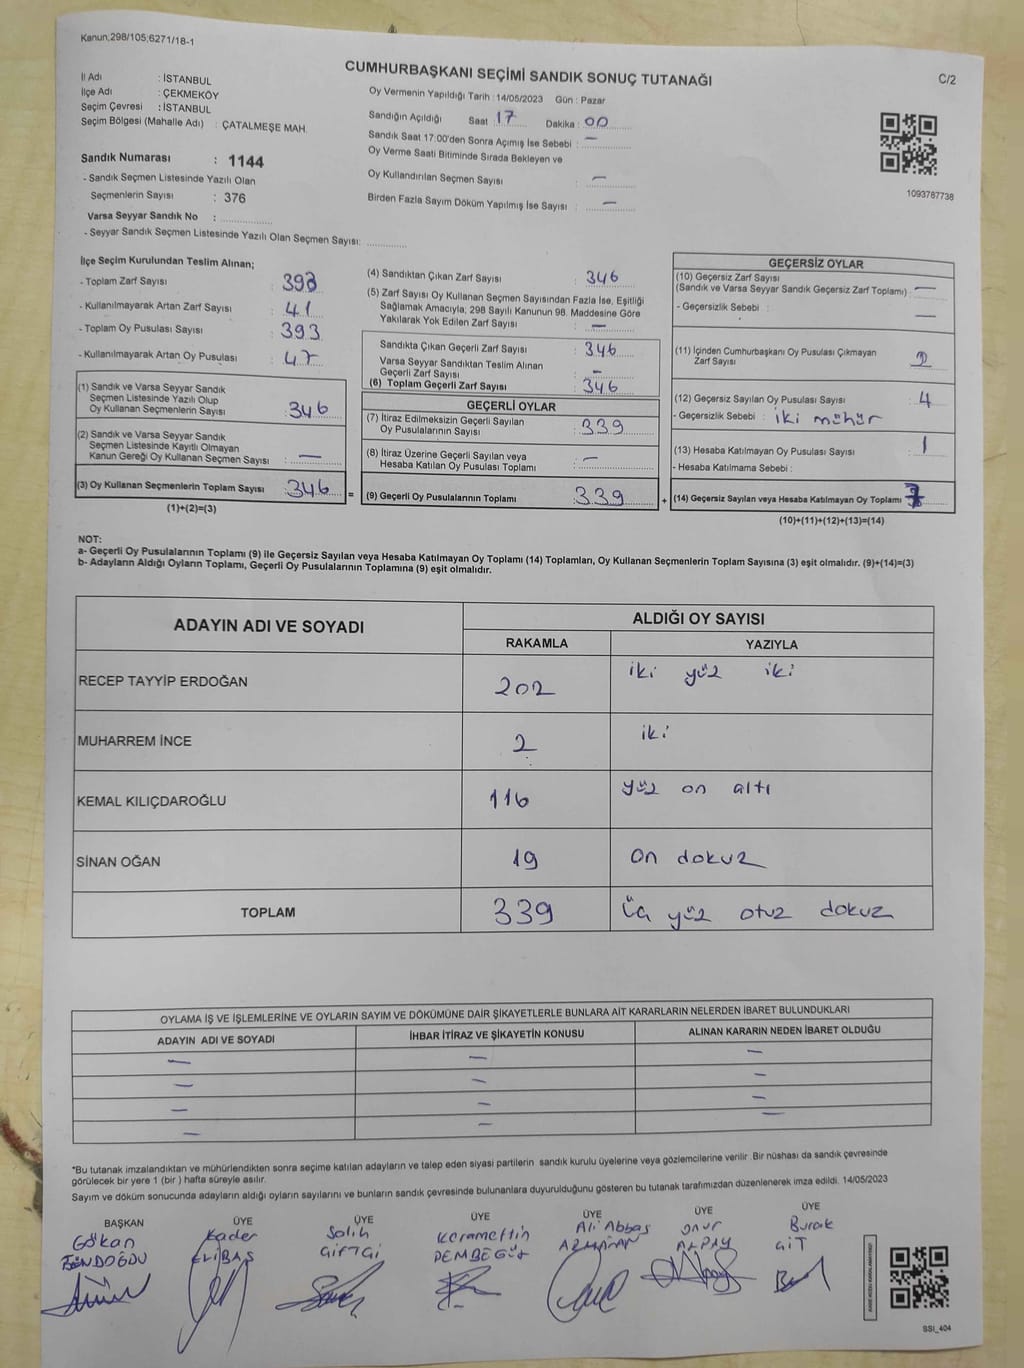 Kanun;298/105;6271/18-1
CUMHURBAŞKANI SEÇİMİ SANDIK SONUÇ TUTANAĞI
C/2
İl Adı : İSTANBUL
İlçe Adı : ÇEKMEKÖY
Seçim Çevresi : İSTANBUL
Seçim Bölgesi (Mahalle Adı) : ÇATALMEŞE MAH.
Sandık Numarası : 1144
- Sandık Seçmen Listesinde Yazılı Olan
Seçmenlerin Sayısı : 376
Varsa Seyyar Sandık No :
- Seyyar Sandık Seçmen Listesinde Yazılı Olan Seçmen Sayısı:
Oy Vermenin Yapıldığı Tarih : 14/05/2023 Gün : Pazar
Sandığın Açıldığı Saat : 17 Dakika : 00
Sandık Saat 17:00'den Sonra Açımış İse Sebebi : —
Oy Verme Saati Bitiminde Sırada Bekleyen ve
Oy Kullandırılan Seçmen Sayısı : —
Birden Fazla Sayım Döküm Yapılmış İse Sayısı : —
1093787738
İlçe Seçim Kurulundan Teslim Alınan;
- Toplam Zarf Sayısı : 393
- Kullanılmayarak Artan Zarf Sayısı : 41
- Toplam Oy Pusulası Sayısı : 393
- Kullanılmayarak Artan Oy Pusulası : 47
(1) Sandık ve Varsa Seyyar Sandık
Seçmen Listesinde Yazılı Olup
Oy Kullanan Seçmenlerin Sayısı : 346
(2) Sandık ve Varsa Seyyar Sandık
Seçmen Listesinde Kayıtlı Olmayan
Kanun Gereği Oy Kullanan Seçmen Sayısı : —
(3) Oy Kullanan Seçmenlerin Toplam Sayısı : 346
(1)+(2)=(3)
=
(4) Sandıktan Çıkan Zarf Sayısı : 346
(5) Zarf Sayısı Oy Kullanan Seçmen Sayısından Fazla İse, Eşitliği
Sağlamak Amacıyla; 298 Sayılı Kanunun 98. Maddesine Göre
Yakılarak Yok Edilen Zarf Sayısı : —
Sandıkta Çıkan Geçerli Zarf Sayısı : 346
Varsa Seyyar Sandıktan Teslim Alınan
Geçerli Zarf Sayısı : —
(6) Toplam Geçerli Zarf Sayısı : 346
GEÇERLİ OYLAR
(7) İtiraz Edilmeksizin Geçerli Sayılan
Oy Pusulalarının Sayısı : 339
(8) İtiraz Üzerine Geçerli Sayılan veya
Hesaba Katılan Oy Pusulası Toplamı : —
(9) Geçerli Oy Pusulalarının Toplamı : 339
+
GEÇERSİZ OYLAR
(10) Geçersiz Zarf Sayısı
(Sandık ve Varsa Seyyar Sandık Geçersiz Zarf Toplamı) : —
- Geçersizlik Sebebi : —
(11) İçinden Cumhurbaşkanı Oy Pusulası Çıkmayan
Zarf Sayısı : 2
(12) Geçersiz Sayılan Oy Pusulası Sayısı : 4
- Geçersizlik Sebebi : iki mühür
(13) Hesaba Katılmayan Oy Pusulası Sayısı : 1
- Hesaba Katılmama Sebebi :
(14) Geçersiz Sayılan veya Hesaba Katılmayan Oy Toplamı : 7
(10)+(11)+(12)+(13)=(14)
NOT:
a- Geçerli Oy Pusulalarının Toplamı (9) ile Geçersiz Sayılan veya Hesaba Katılmayan Oy Toplamı (14) Toplamları, Oy Kullanan Seçmenlerin Toplam Sayısına (3) eşit olmalıdır. (9)+(14)=(3)
b- Adayların Aldığı Oyların Toplamı, Geçerli Oy Pusulalarının Toplamına (9) eşit olmalıdır.
ADAYIN ADI VE SOYADI
ALDIĞI OY SAYISI
RAKAMLA YAZIYLA
RECEP TAYYİP ERDOĞAN 202 iki yüz iki
MUHARREM İNCE 2 iki
KEMAL KILIÇDAROĞLU 116 yüz on altı
SİNAN OĞAN 19 on dokuz
TOPLAM 339 üç yüz otuz dokuz
OYLAMA İŞ VE İŞLEMLERİNE VE OYLARIN SAYIM VE DÖKÜMÜNE DAİR ŞİKAYETLERLE BUNLARA AİT KARARLARIN NELERDEN İBARET BULUNDUKLARI
ADAYIN ADI VE SOYADI İHBAR İTİRAZ VE ŞİKAYETİN KONUSU ALINAN KARARIN NEDEN İBARET OLDUĞU
— — —
— — —
— — —
— — —
*Bu tutanak imzalandıktan ve mühürlendikten sonra seçime katılan adayların ve talep eden siyasi partilerin sandık kurulu üyelerine veya gözlemcilerine verilir. Bir nüshası da sandık çevresinde
görülecek bir yere 1 (bir ) hafta süreyle asılır.
Sayım ve döküm sonucunda adayların aldığı oyların sayılarını ve bunların sandık çevresinde bulunanlara duyurulduğunu gösteren bu tutanak tarafımızdan düzenlenerek imza edildi. 14/05/2023
BAŞKAN ÜYE ÜYE ÜYE ÜYE ÜYE ÜYE
Gökan Kader Salih Keramettin Ali Abbas Onur Burak
GÜNDOĞDU ELİBAŞ ÇİFTÇİ PEMBEGÜL ALPAY GİT
SSI_404